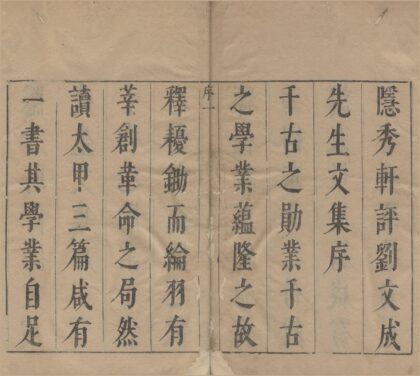 隱秀軒評劉文成
先生文集序
千古之勛業千古
之學業蘊隆之故
序一
釋耰鋤而綸羽有
莘創革命之局然
讀太甲三篇咸有
一書其學業自足